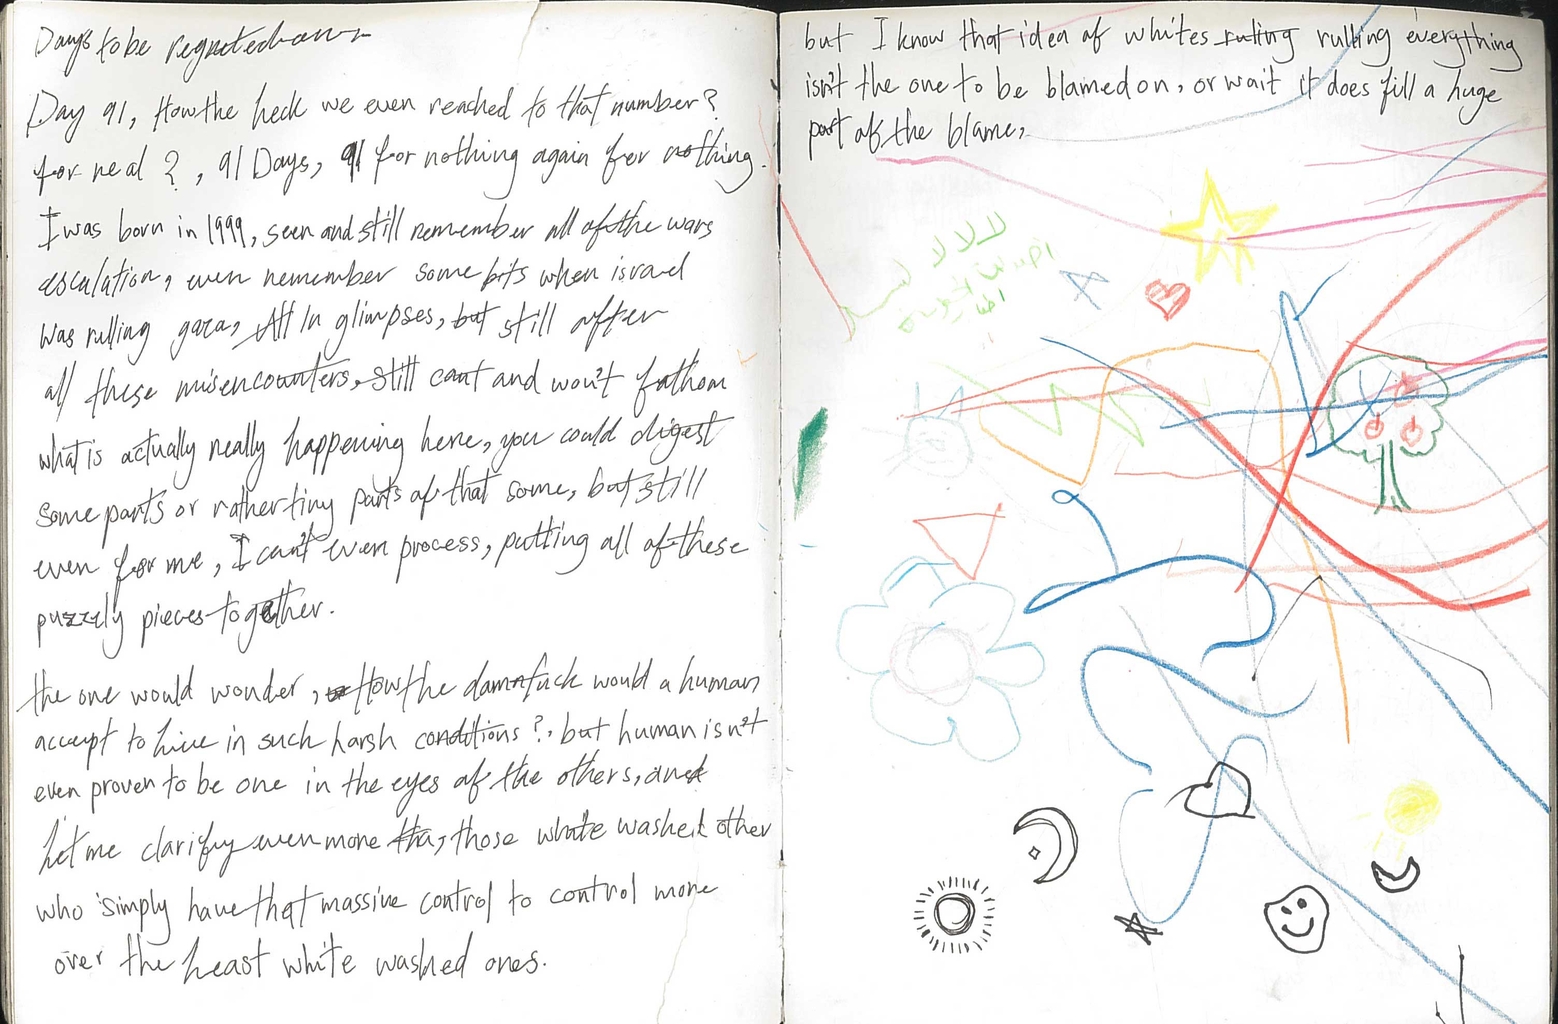 Days to be regreted on
Day 91, How the heck we even reached to that number?
for real?, 91 Days, 91 for nothing again for nothing.
I was born in 1999, seen and still remember all of the wars
escalation, even remember some bits when israel
was rulling gaza, All In glimpses, but still after
all these misencounters, still cant and won't fathom
what is actually really happening here, you could digest
some parts or rather tiny parts of that some, but still
even for me, I can't even process, putting all of these
puzzely pieces together.
the one would wonder, How the damn fuck would a human
accept to live in such harsh conditions?, but human isn't
even proven to be one in the eyes of the others, and
Let me clarify even more tha, those white washed other
who simply have that massive control to control more
over the least white washed ones.
but I know that idea of whites rulling rulling everything
isn't the one to be blamed on, or wait it does fill a huge
part of the blame,
لالالا